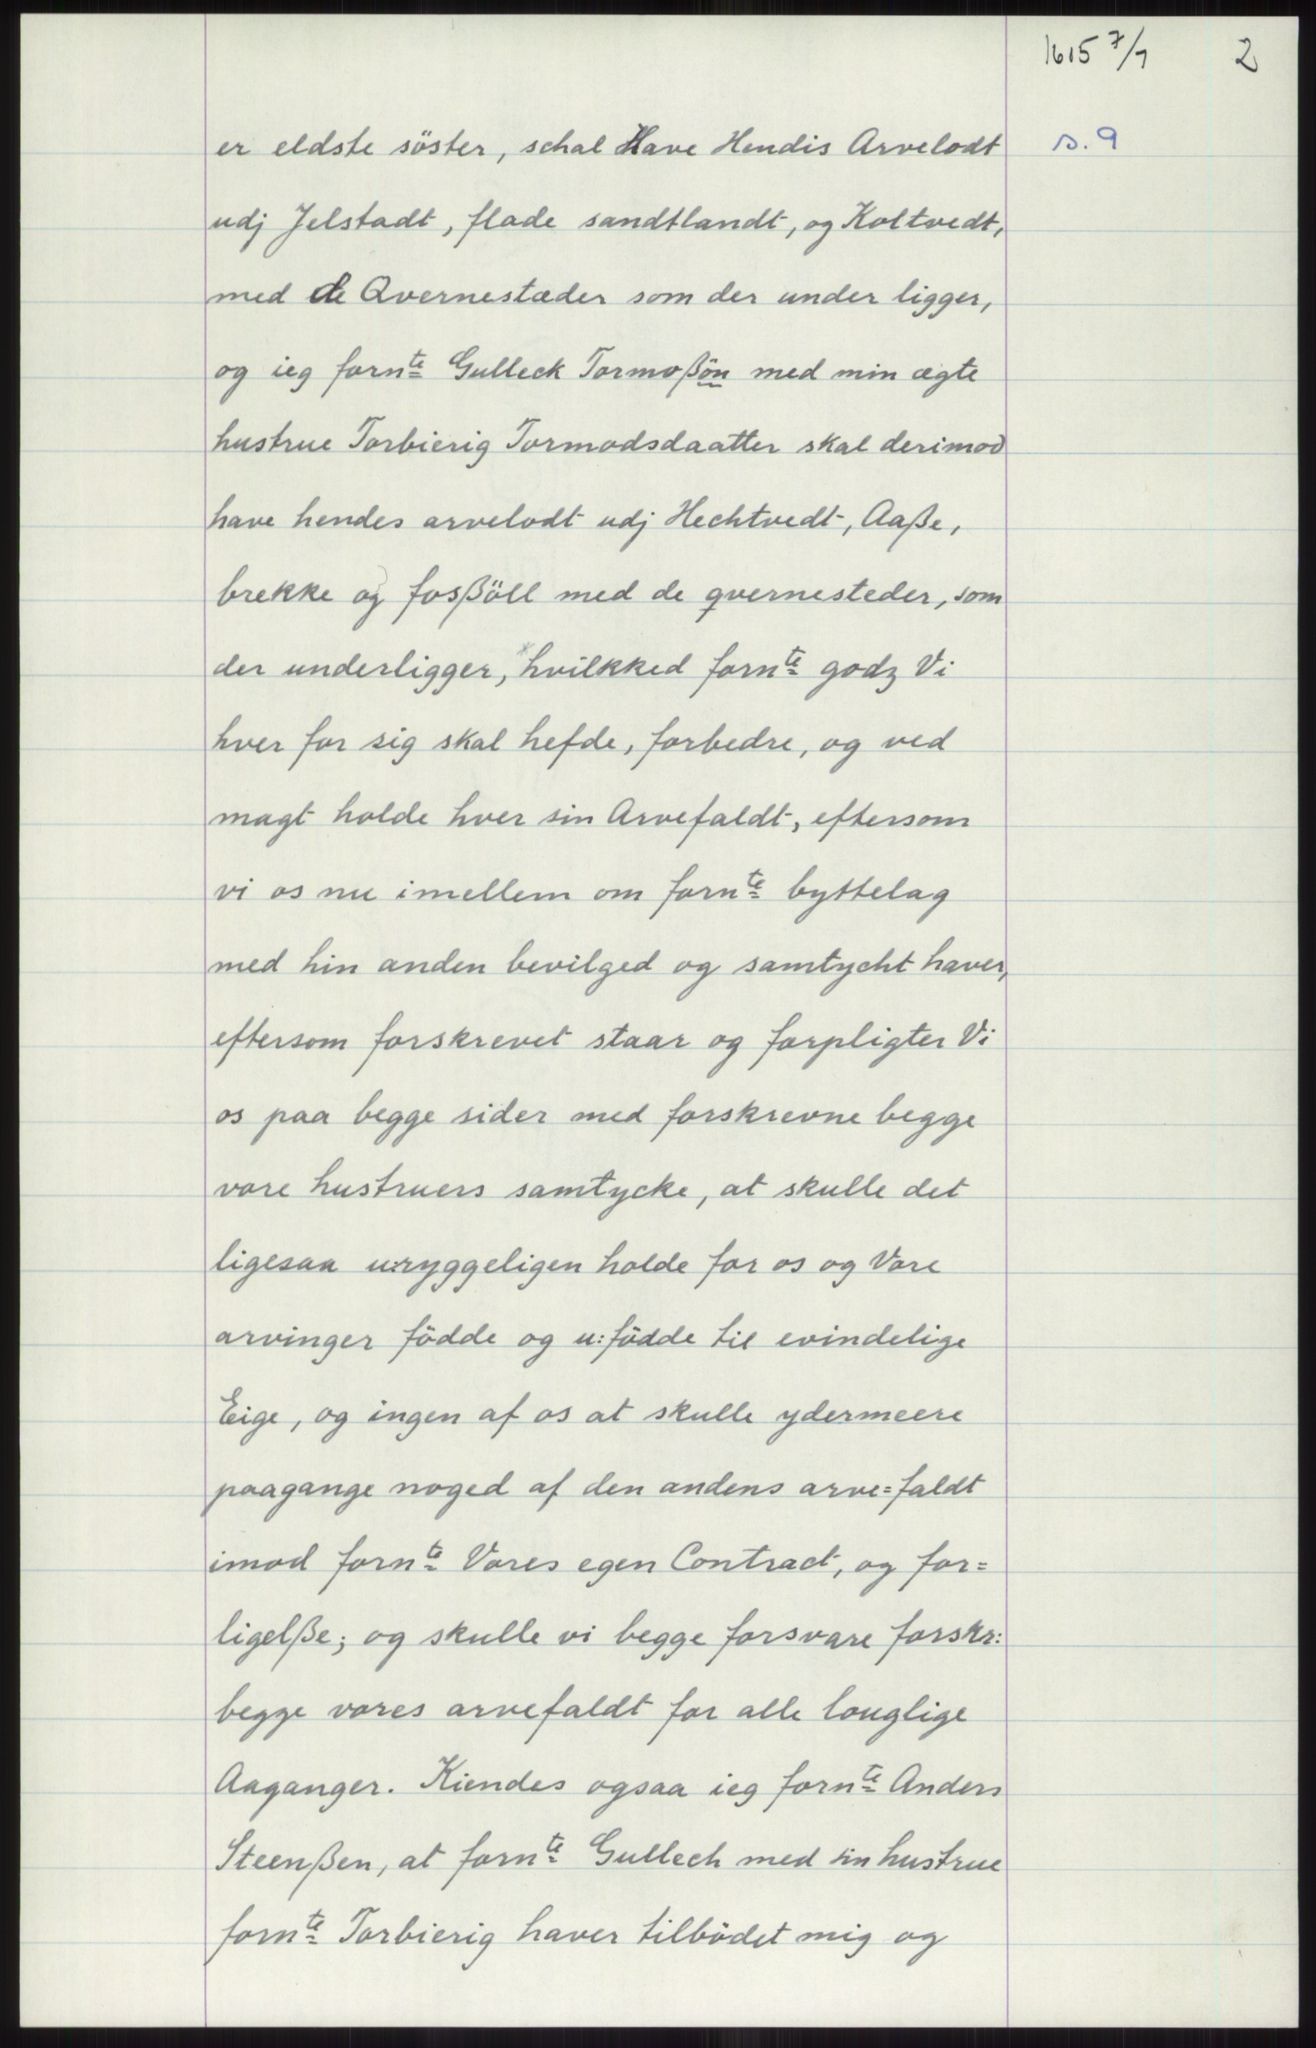 1615 7/7 2
er eldste söster, schal Have Hendis Arvelodt
s. 9
udj Jelstadt, flade sandtlandt, og Koltvedt,
med de Qvernestæder som der under ligger,
og ieg fornte Gulleck Tormoßön med min ægte
hustrue Torbierig Tormodsdaatter skal derimod
have hendes arvelodt udj Hechtvedt, Aaße,
brekke og fosßöll med de qvernesteder, som
der underligger, hvilkked fornte godz Vi
hver for sig skal hefde, forbedre, og ved
magt holde hver sin Arvefaldt, eftersom
vi os nu imellem om fornte byttelag
med hin anden bevilged og samtycht haver,
eftersom forskrevet staar og forpligter Vi
os paa begge sider med forskrevne begge
vore hustruers samtycke, at skulle det
ligesaa u:ryggeligen holde for os og Vore
arvinger födde og u:födde til evindelige
Eige, og ingen af os at skulle ydermeere
paagange noged af den andens arve=faldt
imod fornte Vores egen Contract, og for=
ligelße; og skulle vi begge forsvare forskr:
begge vores arvefaldt for alle louglige
Aaganger. Kiendes ogsaa ieg fornte Anders
Steenßen, at fornte Gullech med sin hustrue
fornte Torbierig haver tilbödet mig og